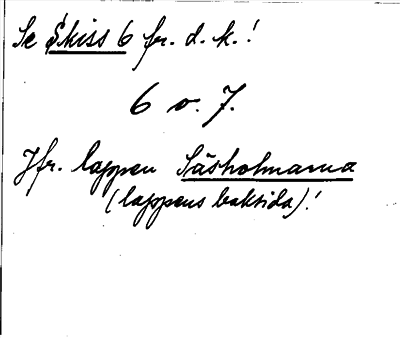 Se Skiss 6 fr. d. k.!
6 o. 7.
Jfr. lappen Såsholmarna
(lappens baksida)!